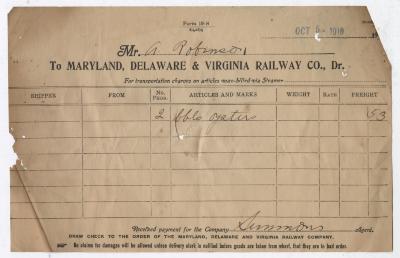 Form 19-S
OCT 5 - 1910
Mr. A. Robinson
To MARYLAND, DELAWARE & VIRGINIA RAILWAY CO., Dr.
For transportation charges on articles way-billed via Steamer
SHIPPER FROM No. PKGS. ARTICLES AND MARKS WEIGHT RATE FREIGHT
2 bbls oysters 53
Received payment for the Company Simmons Agent.
DRAW CHECK TO THE ORDER OF THE MARYLAND, DELAWARE AND VIRGINIA RAILWAY COMPANY.
No claims for damages will be allowed unless delivery clerk is notified before goods are taken from wharf, that they are in bad order.